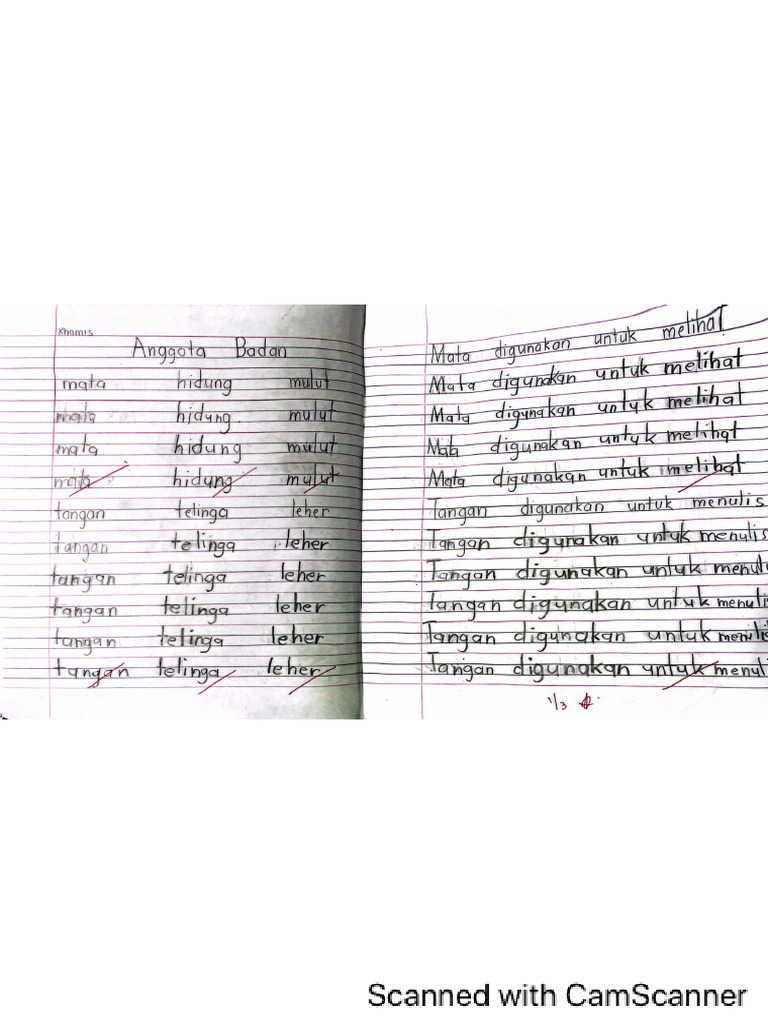 Khamis
Anggota Badan
mata hidung mulut
mata hidung mulut
mata hidung mulut
mata hidung mulut
tangan telinga leher
tangan telinga leher
tangan telinga leher
tangan telinga leher
tangan telinga leher
tangan telinga leher
Mata digunakan untuk melihat
Mata digunakan untuk melihat
Mata digunakan untuk melihat
Mata digunakan untuk melihat
Mata digunakan untuk melihat
Tangan digunakan untuk menulis
Tangan digunakan untuk menulis
Tangan digunakan untuk menuli
Tangan digunakan untuk menulis
Tangan digunakan untuk menuli
Tangan digunakan untuk menuli
1/3
Scanned with CamScanner